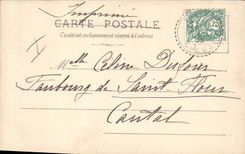 Imprimé
CARTE POSTALE
Ce côté est exclusivement réservé à l'adresse
Melle Céline Dufour
Faubourg de Saint-Flour
Cantal